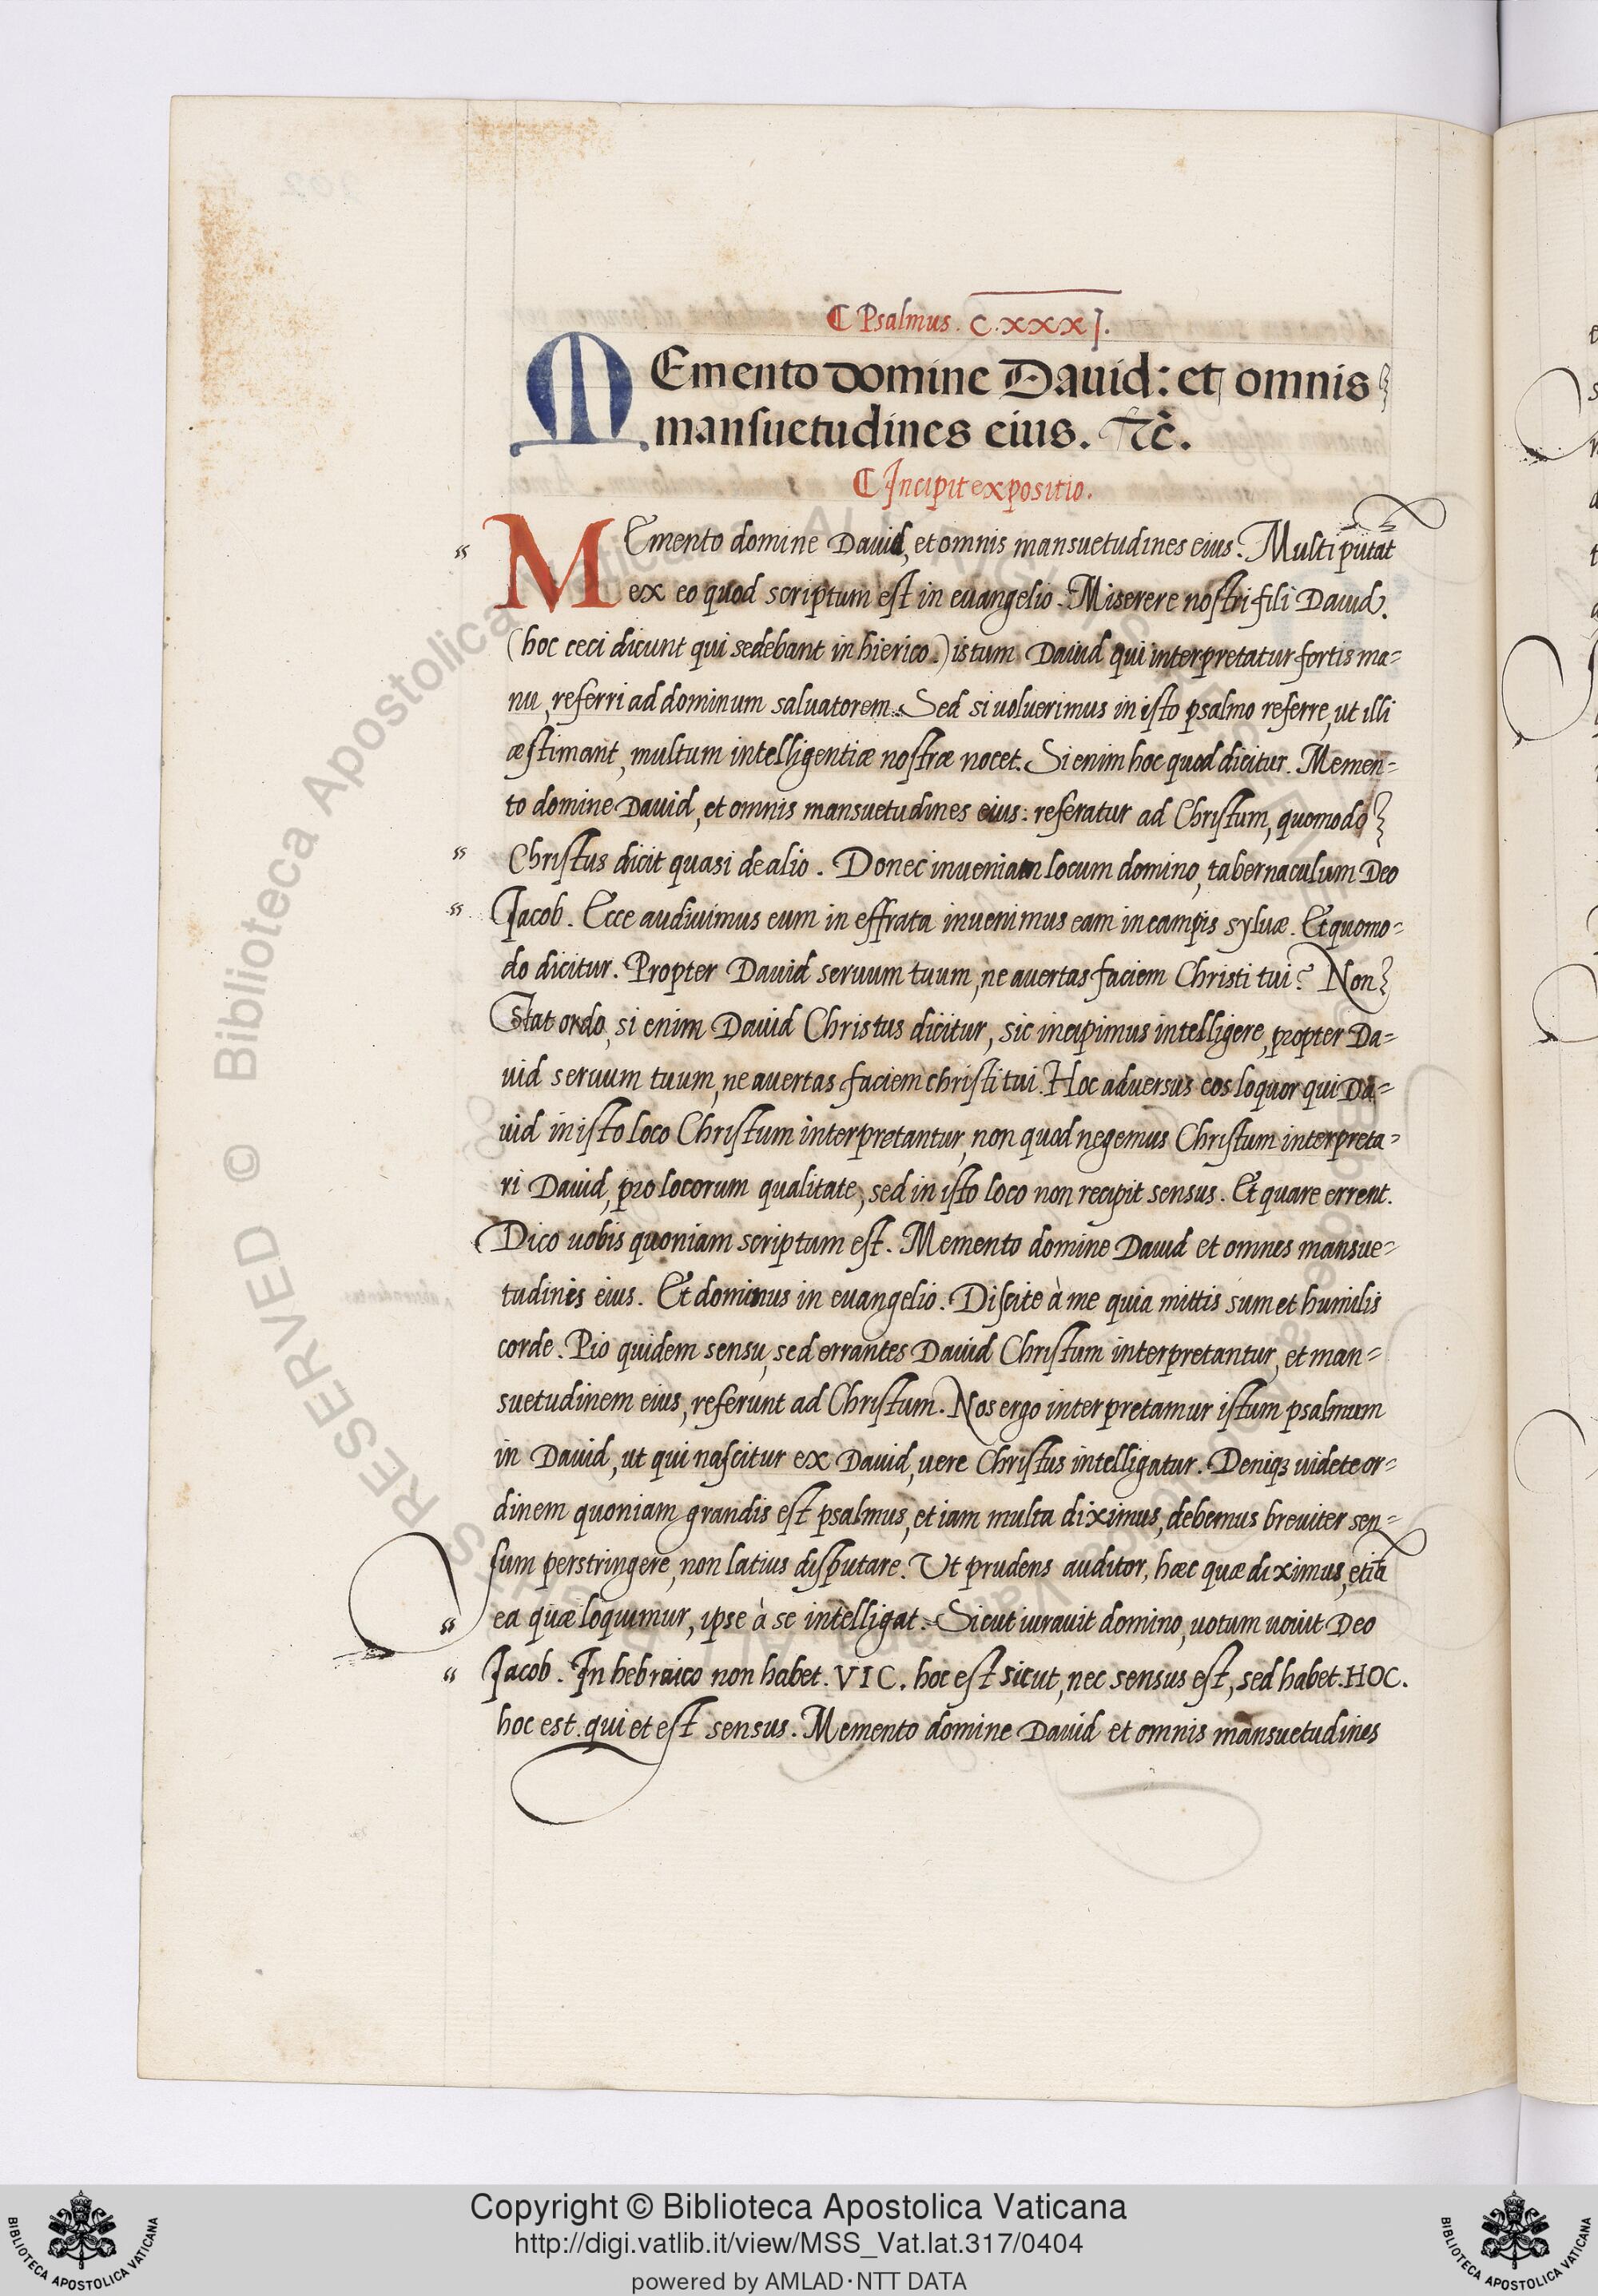 ¶ Psalmus. C.XXXI.
MEmento domine Dauid: et omnis
mansuetudines eius. &c̃.
¶ Incipit expositio.
MEmento domine Dauid, et omnis mansuetudines eius. Multi putãt
ex eo quod scriptum est in euangelio. Miserere nostri fili Dauid.
(hoc ceci dicunt qui sedebant in hierico.) istum Dauid qui interpretatur fortis ma=
nu, referri ad dominum saluatorem. Sed si uoluerimus in isto psalmo referre, ut illi
æstimant, multum intelligentiæ nostræ nocet. Si enim hoc quod dicitur. Memen=
to domine Dauid, et omnis mansuetudines eius: referatur ad Christum, quomodo
Christus dicit quasi de alio. Donec inueniam locum domino, tabernaculum Deo
Jacob. Ecce audiuimus eum in effrata inuenimus eam in campis syluæ. Et quomo=
do dicitur. Propter Dauid seruum tuum, ne auertas faciem Christi tui? Non
stat ordo, si enim Dauid Christus dicitur, sic incipimus intelligere, propter Da=
uid seruum tuum, ne auertas faciem christi tui. Hoc aduersus eos loquor qui Da=
uid in isto loco Christum interpretantur, non quod negemus Christum interpreta=
ri Dauid, pro locorum qualitate, sed in isto loco non recipit sensus. Et quare errent.
Dico uobis quoniam scriptum est. Memento domine Dauid et omnes mansue=
tudinis eius. Et dominus in euangelio. Discite à me quia mittis sum et humilis
corde. Pio quidem sensu, sed errantes Dauid Christum interpretantur, et man=
suetudinem eius, referunt ad Christum. Nos ergo interpretamur istum psalmum
in Dauid, ut qui nascitur ex Dauid, uere Christus intelligatur. Deniqꝫ uidete or=
dinem quoniam grandis est psalmus, et iam multa diximus, debemus breuiter sen=
sum perstringere, non latius disputare. Ut prudens auditor, hæc quæ diximus, etiã
ea quæ loquimur, ipse à se intelligat. Sicut iurauit domino, uotum uouit Deo
Jacob. In hebraico non habet. VIC. hoc est sicut, nec sensus est, sed habet. HOC.
hoc est. qui et est sensus. Memento domine Dauid et omnis mansuetudines
Copyright © Biblioteca Apostolica Vaticana
http://digi.vatlib.it/view/MSS_Vat.lat.317/0404
powered by AMLAD·NTT DATA
BIBLIOTECA APOSTOLICA VATICANA
BIBLIOTECA APOSTOLICA VATICANA